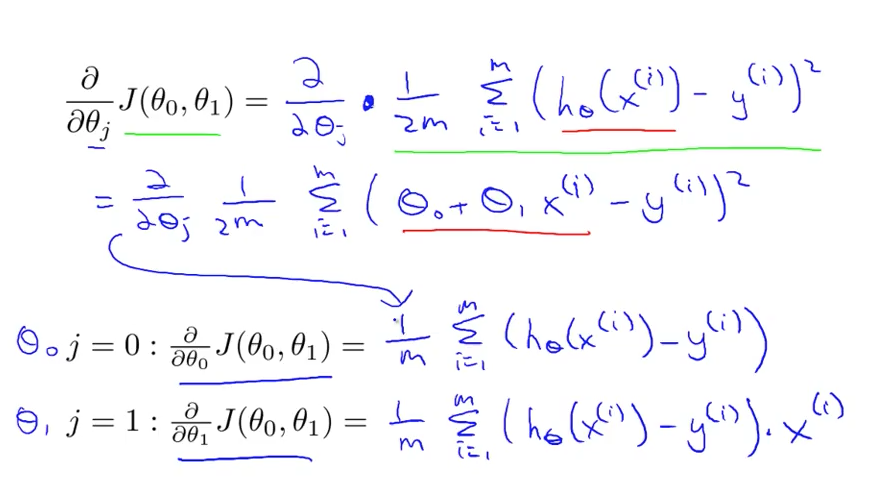 ∂/∂θ_j J(θ₀, θ₁) = ∂/∂θ_j · 1/2m Σ_{i=1}^{m} (h_θ(x^{(i)}) − y^{(i)})²
= ∂/∂θ_j 1/2m Σ_{i=1}^{m} (θ₀ + θ₁ x^{(i)} − y^{(i)})²
θ₀ j = 0 : ∂/∂θ₀ J(θ₀, θ₁) = 1/m Σ_{i=1}^{m} (h_θ(x^{(i)}) − y^{(i)})
θ₁ j = 1 : ∂/∂θ₁ J(θ₀, θ₁) = 1/m Σ_{i=1}^{m} (h_θ(x^{(i)}) − y^{(i)}) · x^{(i)}